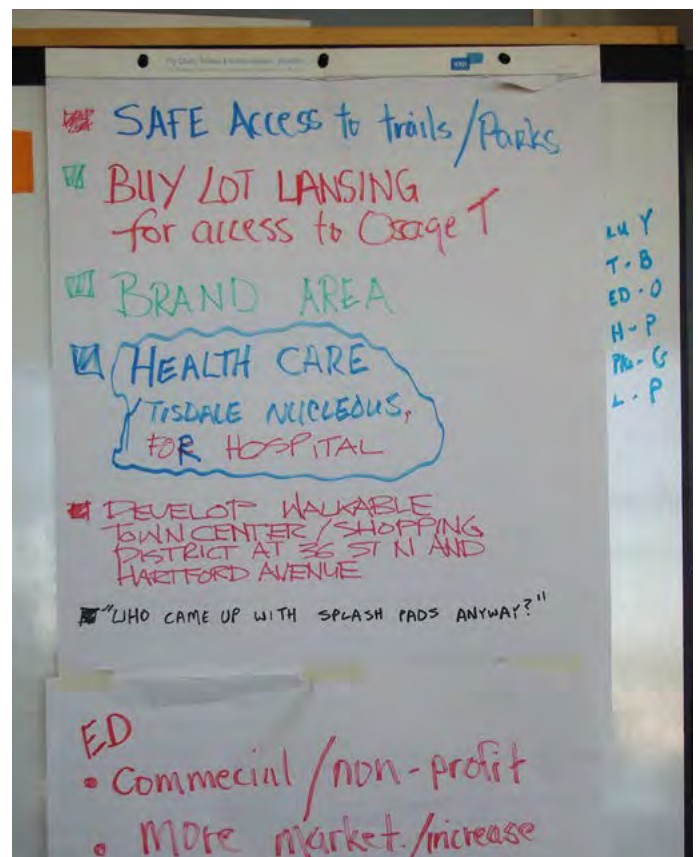 SAFE Access to trails/Parks
BUY LOT LANSING
for access to Osage T
BRAND AREA
HEALTH CARE
TISDALE NUCLEOUS,
FOR HOSPITAL
DEVELOP WALKABLE
TOWN CENTER/SHOPPING
DISTRICT AT 36 ST N AND
HARTFORD AVENUE
"WHO CAME UP WITH SPLASH PADS ANYWAY?"
LU Y
T - B
ED - O
H - P
PKs - G
L - P
ED
• Commecial/non-profit
• More market./increase